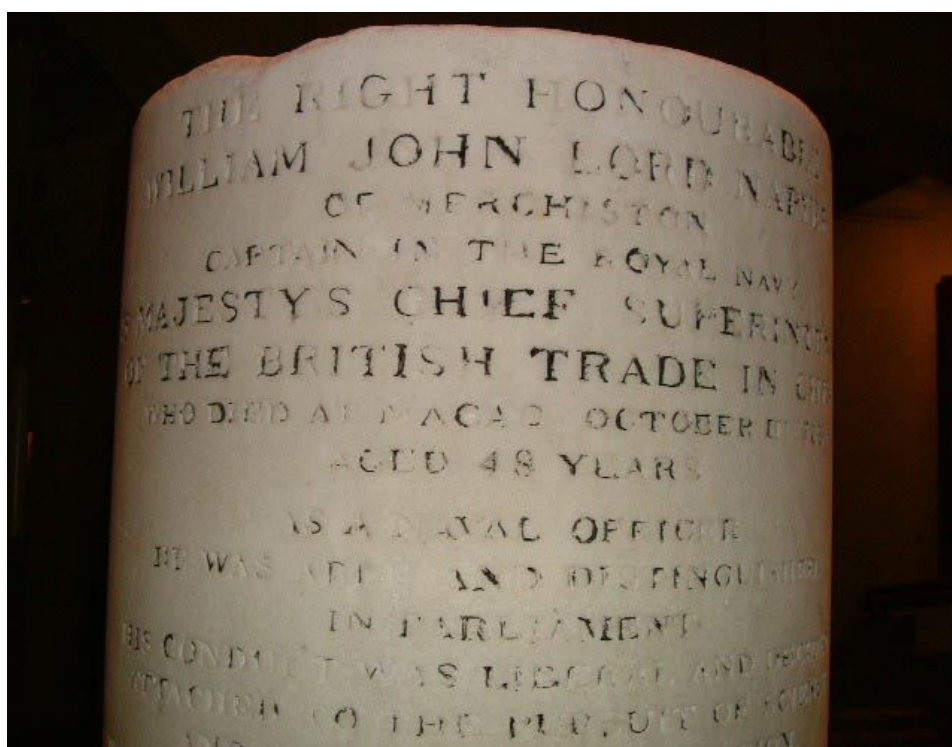 THE RIGHT HONOURABLE
WILLIAM JOHN LORD NAPIER
OF MERCHISTON
CAPTAIN IN THE ROYAL NAVY
MAJESTY'S CHIEF
OF THE BRITISH TRADE IN
WHO DIED AT MACAO OCTOBER
AGED 48 YEARS
AS A NAVAL OFFICER
HE WAS ABLE AND DISTINGUISHED
IN PARLIAMENT
HIS CONDUCT WAS LIBERAL AND
ATTACHED TO THE PURSUIT OF SCIENCE
AND